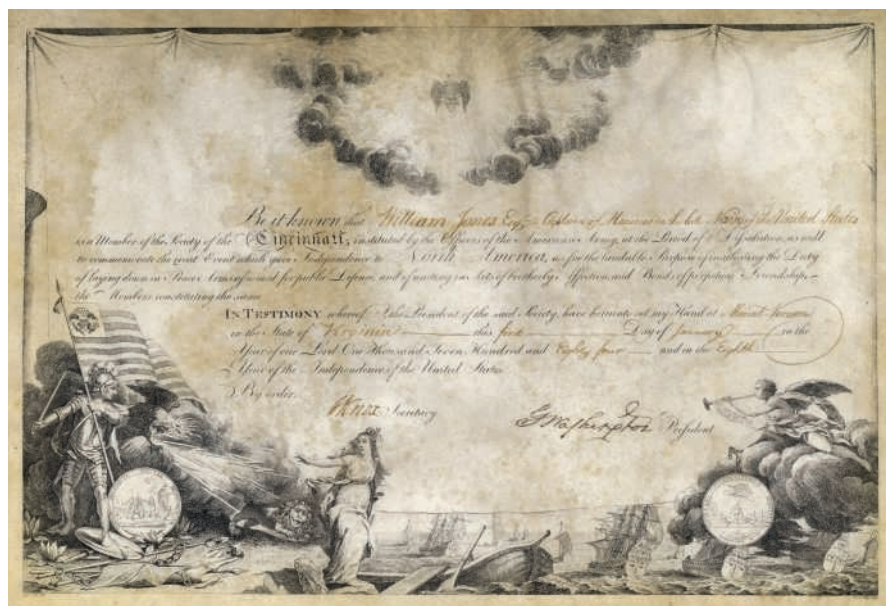 Be it known that William Jones Esqr. Captain of Marines in the late Navy of the United States
is a Member of the Society of the Cincinnati; instituted by the Officers of the American Army, at the Period of its Dissolution, as well
to commemorate the great Event which gave Independence to North America, as for the laudable Purpose of inculcating the Duty
of laying down in Peace Arms assumed for public Defence, and of uniting in Acts of brotherly Affection, and Bonds of perpetual Friendship,
the Members constituting the same.
IN TESTIMONY whereof I, the President of the said Society, have hereunto set my Hand at Mount Vernon
in the State of Virginia this first Day of January in the
Year of our Lord One Thousand Seven Hundred and Eighty four and in the Eighth
Year of the Independence of the United States.
By order,
HKnox Secretary
G Washington President